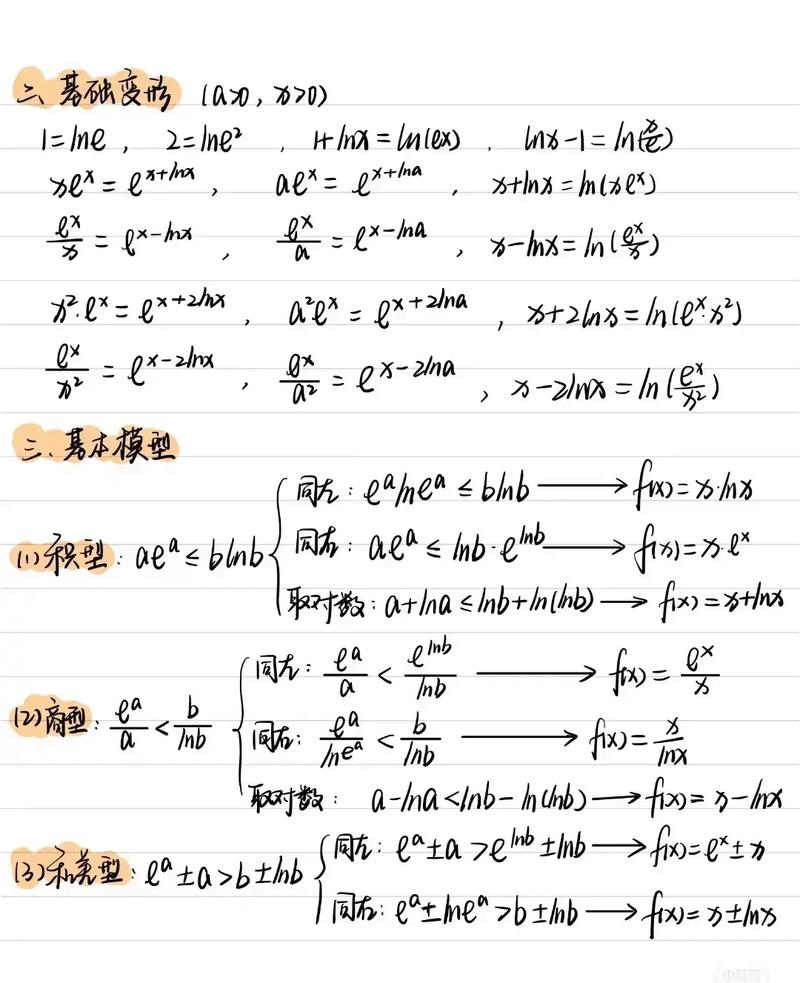 二、基础变形 (a>0, x>0)
1=lne, 2=lne², 1+lnx=ln(ex), lnx-1=ln(x/e)
xeˣ=e^(x+lnx), aeˣ=e^(x+lna), x+lnx=ln(xeˣ)
eˣ/x=e^(x-lnx), eˣ/a=e^(x-lna), x-lnx=ln(eˣ/x)
x²·eˣ=e^(x+2lnx), a²eˣ=e^(x+2lna), x+2lnx=ln(eˣ·x²)
eˣ/x²=e^(x-2lnx), eˣ/a²=e^(x-2lna), x-2lnx=ln(eˣ/x²)
三、基本模型
(1)积型: aeᵃ≤blnb
同左: eᵃlneᵃ≤blnb → f(x)=x·lnx
同右: aeᵃ≤lnb·e^(lnb) → f(x)=x·eˣ
取对数: a+lna≤lnb+ln(lnb) → f(x)=x+lnx
(2)商型: eᵃ/a<b/lnb
同左: eᵃ/a<e^(lnb)/lnb → f(x)=eˣ/x
同右: eᵃ/lneᵃ<b/lnb → f(x)=x/lnx
取对数: a-lna<lnb-ln(lnb) → f(x)=x-lnx
(3)和差型: eᵃ±a>b±lnb
同左: eᵃ±a>e^(lnb)±lnb → f(x)=eˣ±x
同右: eᵃ±lneᵃ>b±lnb → f(x)=x±lnx
小红书